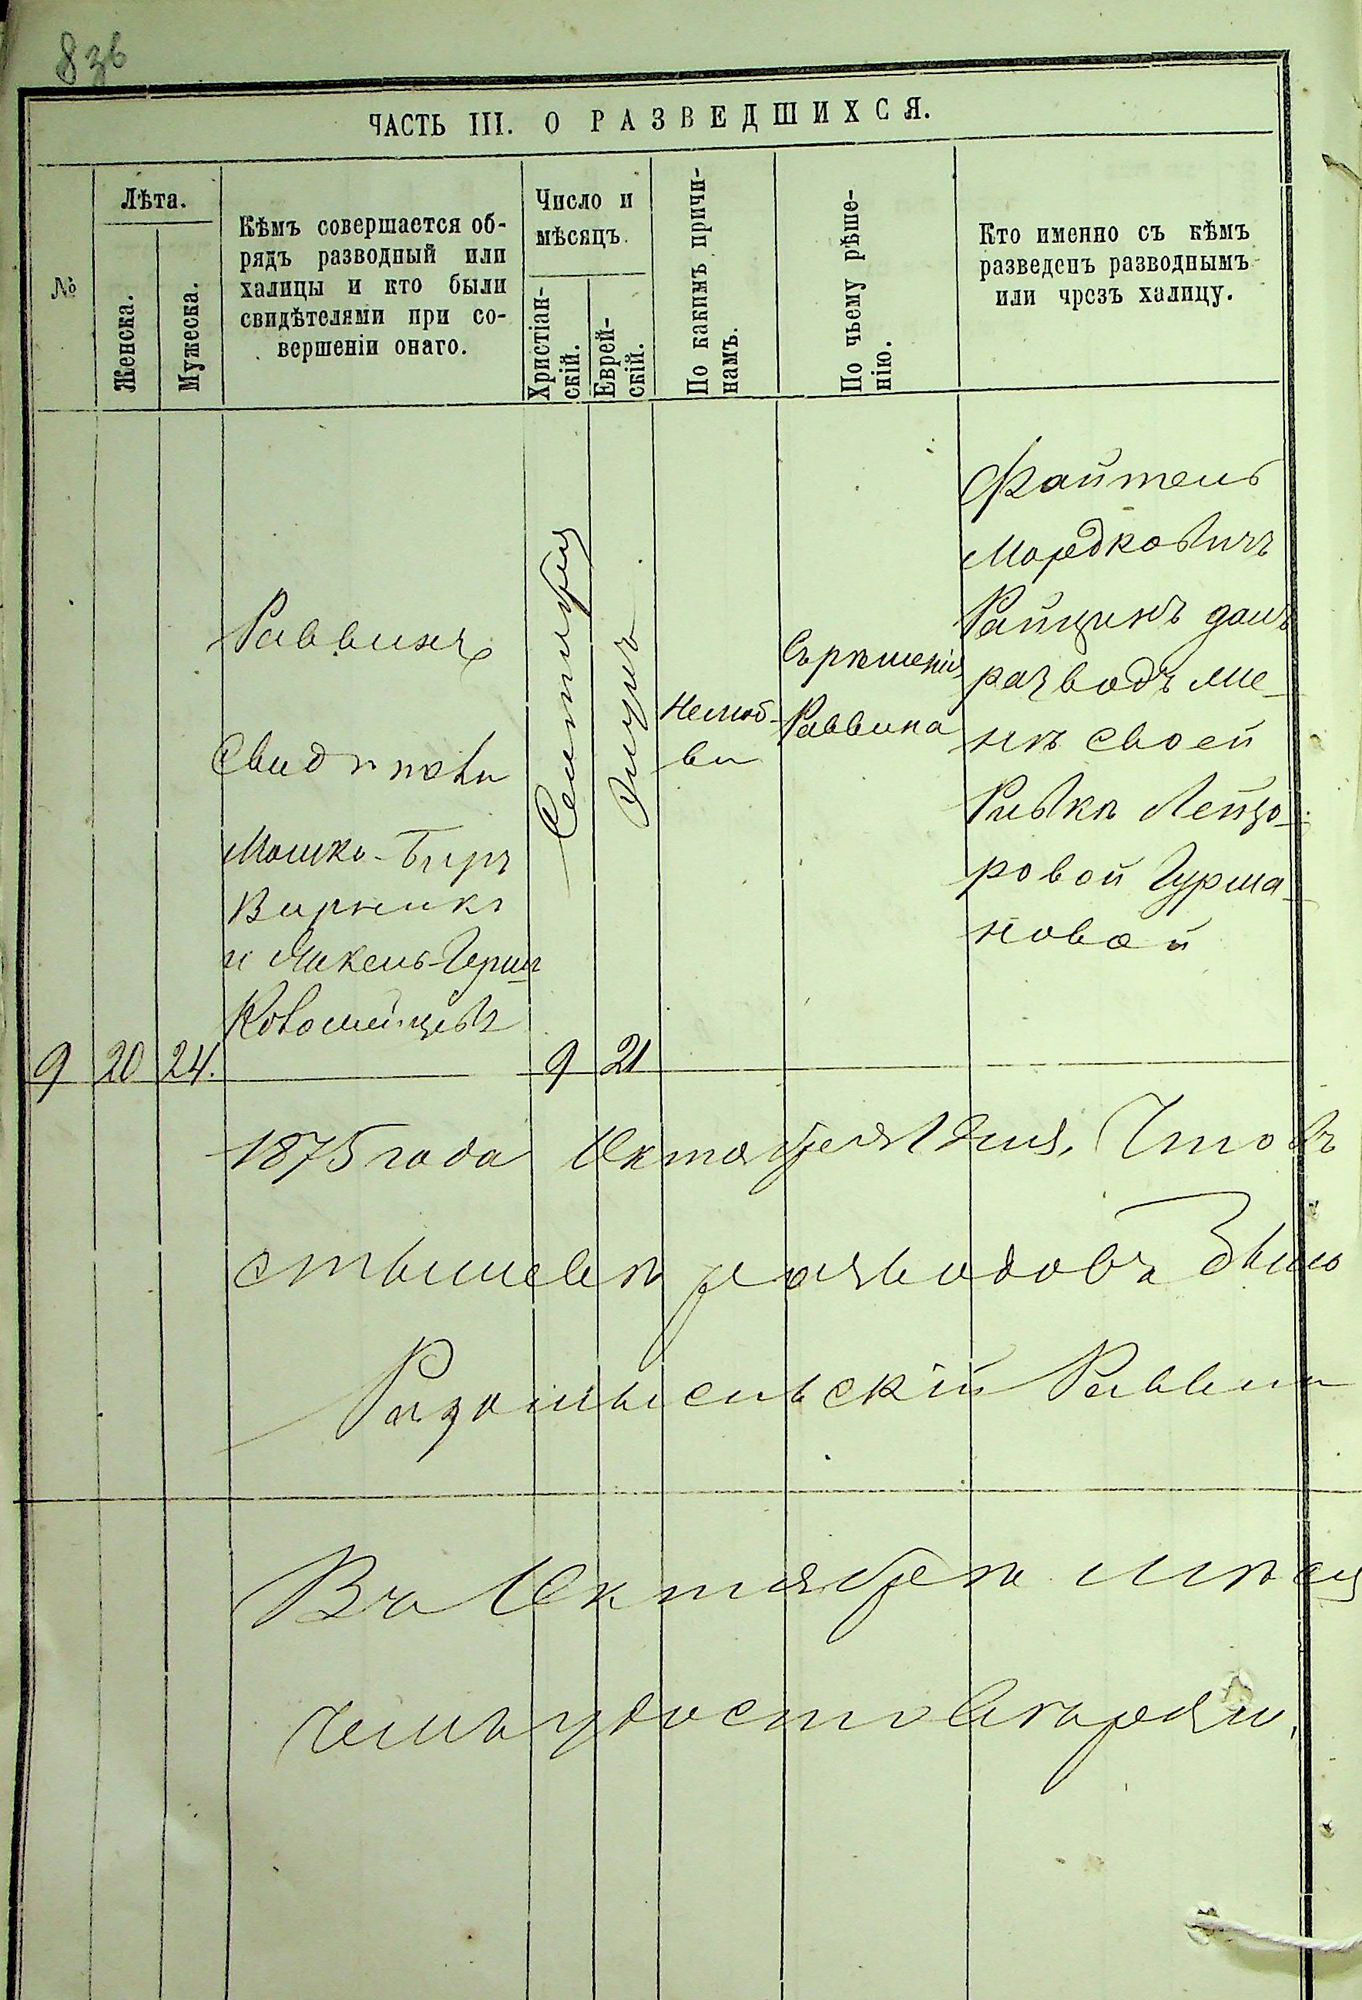 ЧАСТЬ III. О РАЗВЕДШИХСЯ.
№
Лѣта.
Женска.
Мужеска.
Кѣмъ совершается об-
рядъ разводный или
халицы и кто были
свидѣтелями при со-
вершеніи онаго.
Число и
мѣсяцъ.
Христіан-
скій.
Еврей-
скій.
По какимъ причи-
намъ.
По чьему рѣше-
нію.
Кто именно съ кѣмъ
разведенъ разводнымъ
или чрезъ халицу.
9
20
24.
Раввинъ
Свидѣтели
Мошко-Беръ
Верникъ
и Янкель-Герш
Коломеецъ
Сентября
9
21
Нелюб-
ви
Съ рѣшенія
Раввина
Файтель
Мордковичъ
Райцинъ далъ
разводъ же-
нѣ своей
Ривкѣ Лейзо-
ровой Гурма-
новой
1875 года Октября 1 дня, Что въ
разводовъ было
Радомысльскій Раввин
Въ Октябрѣ мѣся
удостовѣряю,